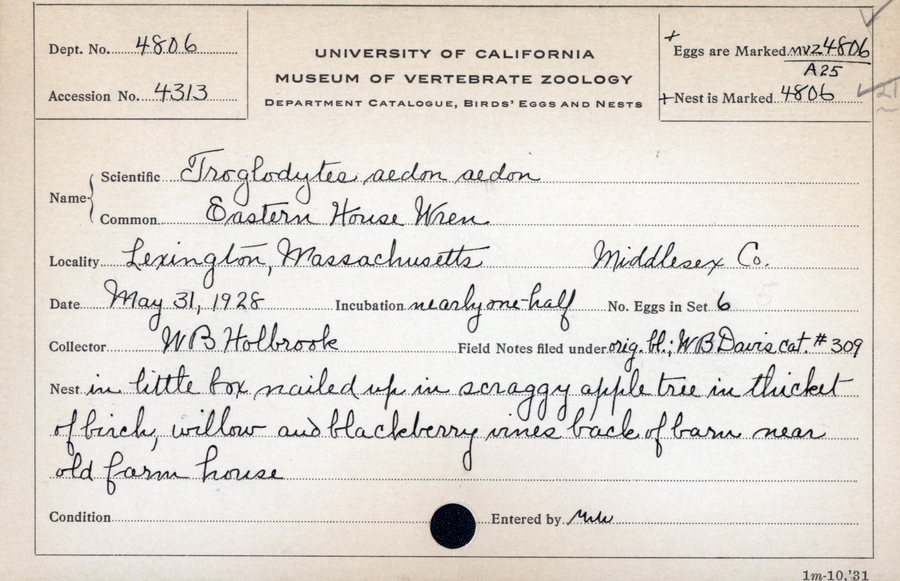 Dept. No. 4806
Accession No. 4313
UNIVERSITY OF CALIFORNIA
MUSEUM OF VERTEBRATE ZOOLOGY
DEPARTMENT CATALOGUE, BIRDS' EGGS AND NESTS
+ Eggs are Marked MVZ 4806
A25
+ Nest is Marked 4806
21
Name { Scientific Troglodytes aedon aedon
Common Eastern House Wren
Locality Lexington, Massachusetts Middlesex Co.
Date May 31, 1928 Incubation nearly one-half No. Eggs in Set 6
Collector W B Holbrook Field Notes filed under orig. bl.; W B Davis cat. # 309
Nest in little box nailed up in scraggy apple tree in thicket
of birch, willow and blackberry vines back of barn near
old farm house
Condition Entered by
1m-10,'31